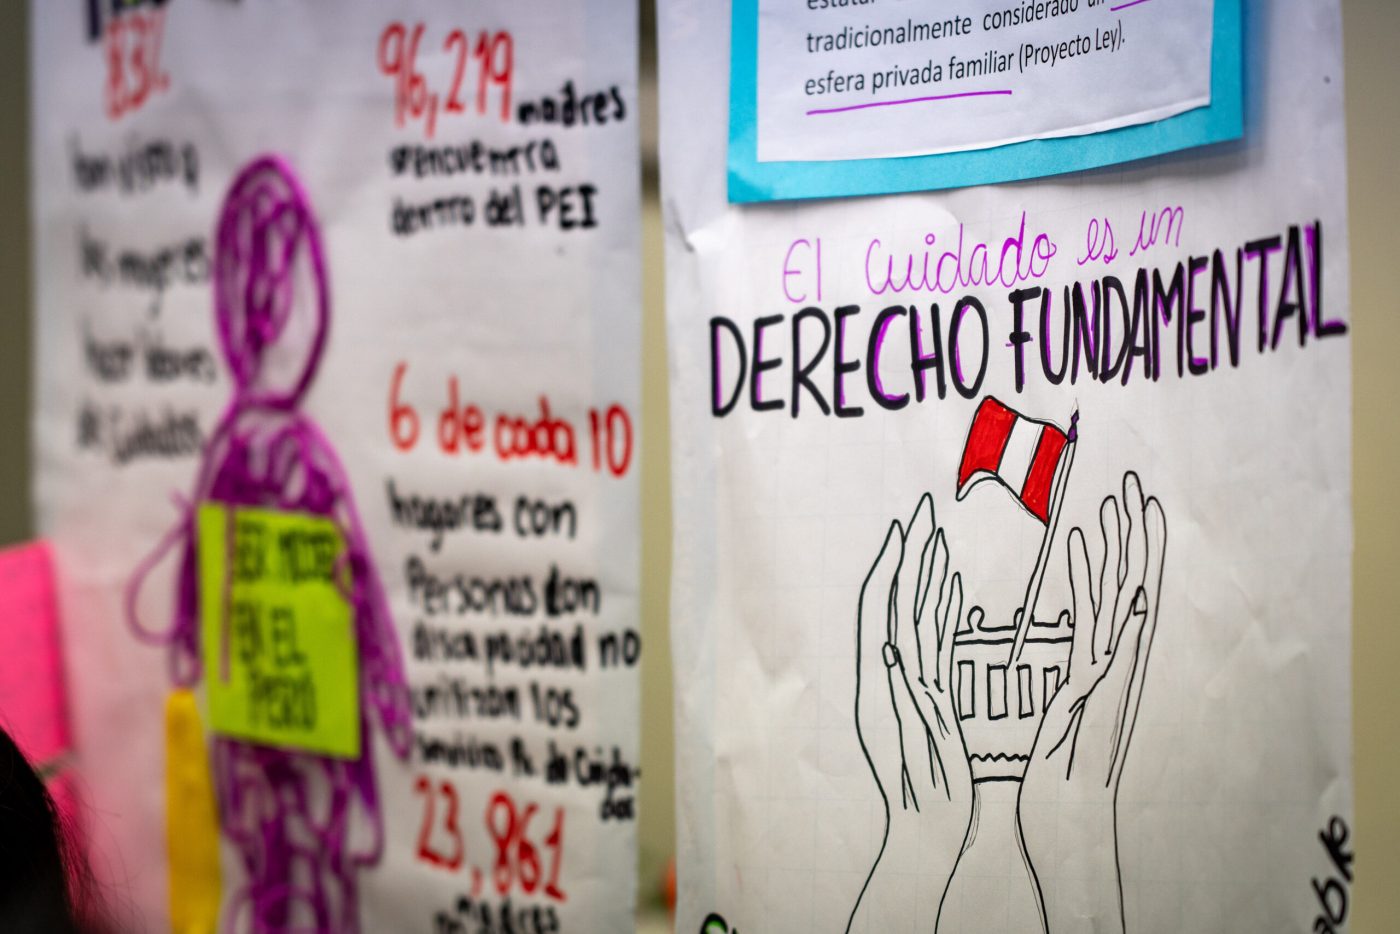 83%
han visto a
las mujeres
hacer labores
de Cuidados
96,219 madres
se encuentra
dentro del PEI
6 de cada 10
hogares con
Personas con
discapacidad no
utilizan los
Servicios P. de Cuida-
dos
23,861
madres
SER MADRE
EN EL
PERÚ
tradicionalmente considerado
esfera privada familiar (Proyecto Ley).
El cuidado es un
DERECHO FUNDAMENTAL